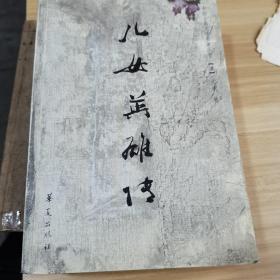 儿女英雄传
华夏出版社